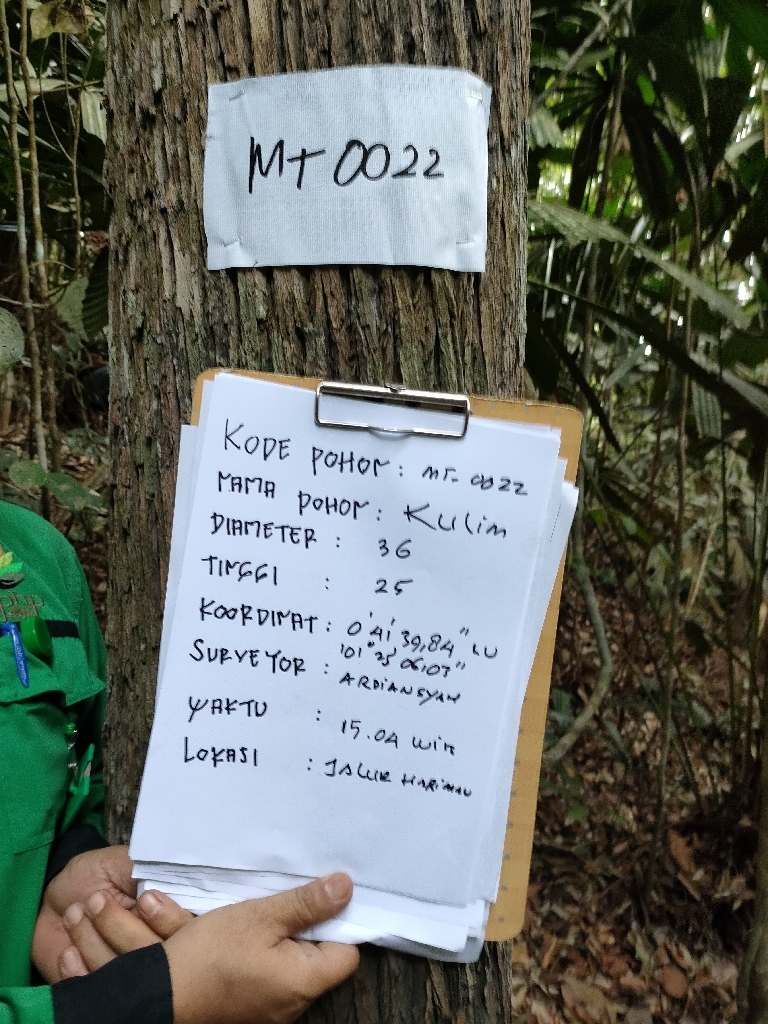 MT 0022
KODE POHON : MT- 0022
NAMA POHON : KULIM
DIAMETER : 36
TINGGI : 25
KOORDINAT : 0° 41' 39,84" LU
101° 25' 06,03"
SURVEYOR : ARDIANSYAH
WAKTU : 15.04 WIB
LOKASI : JALUR HARIMAU